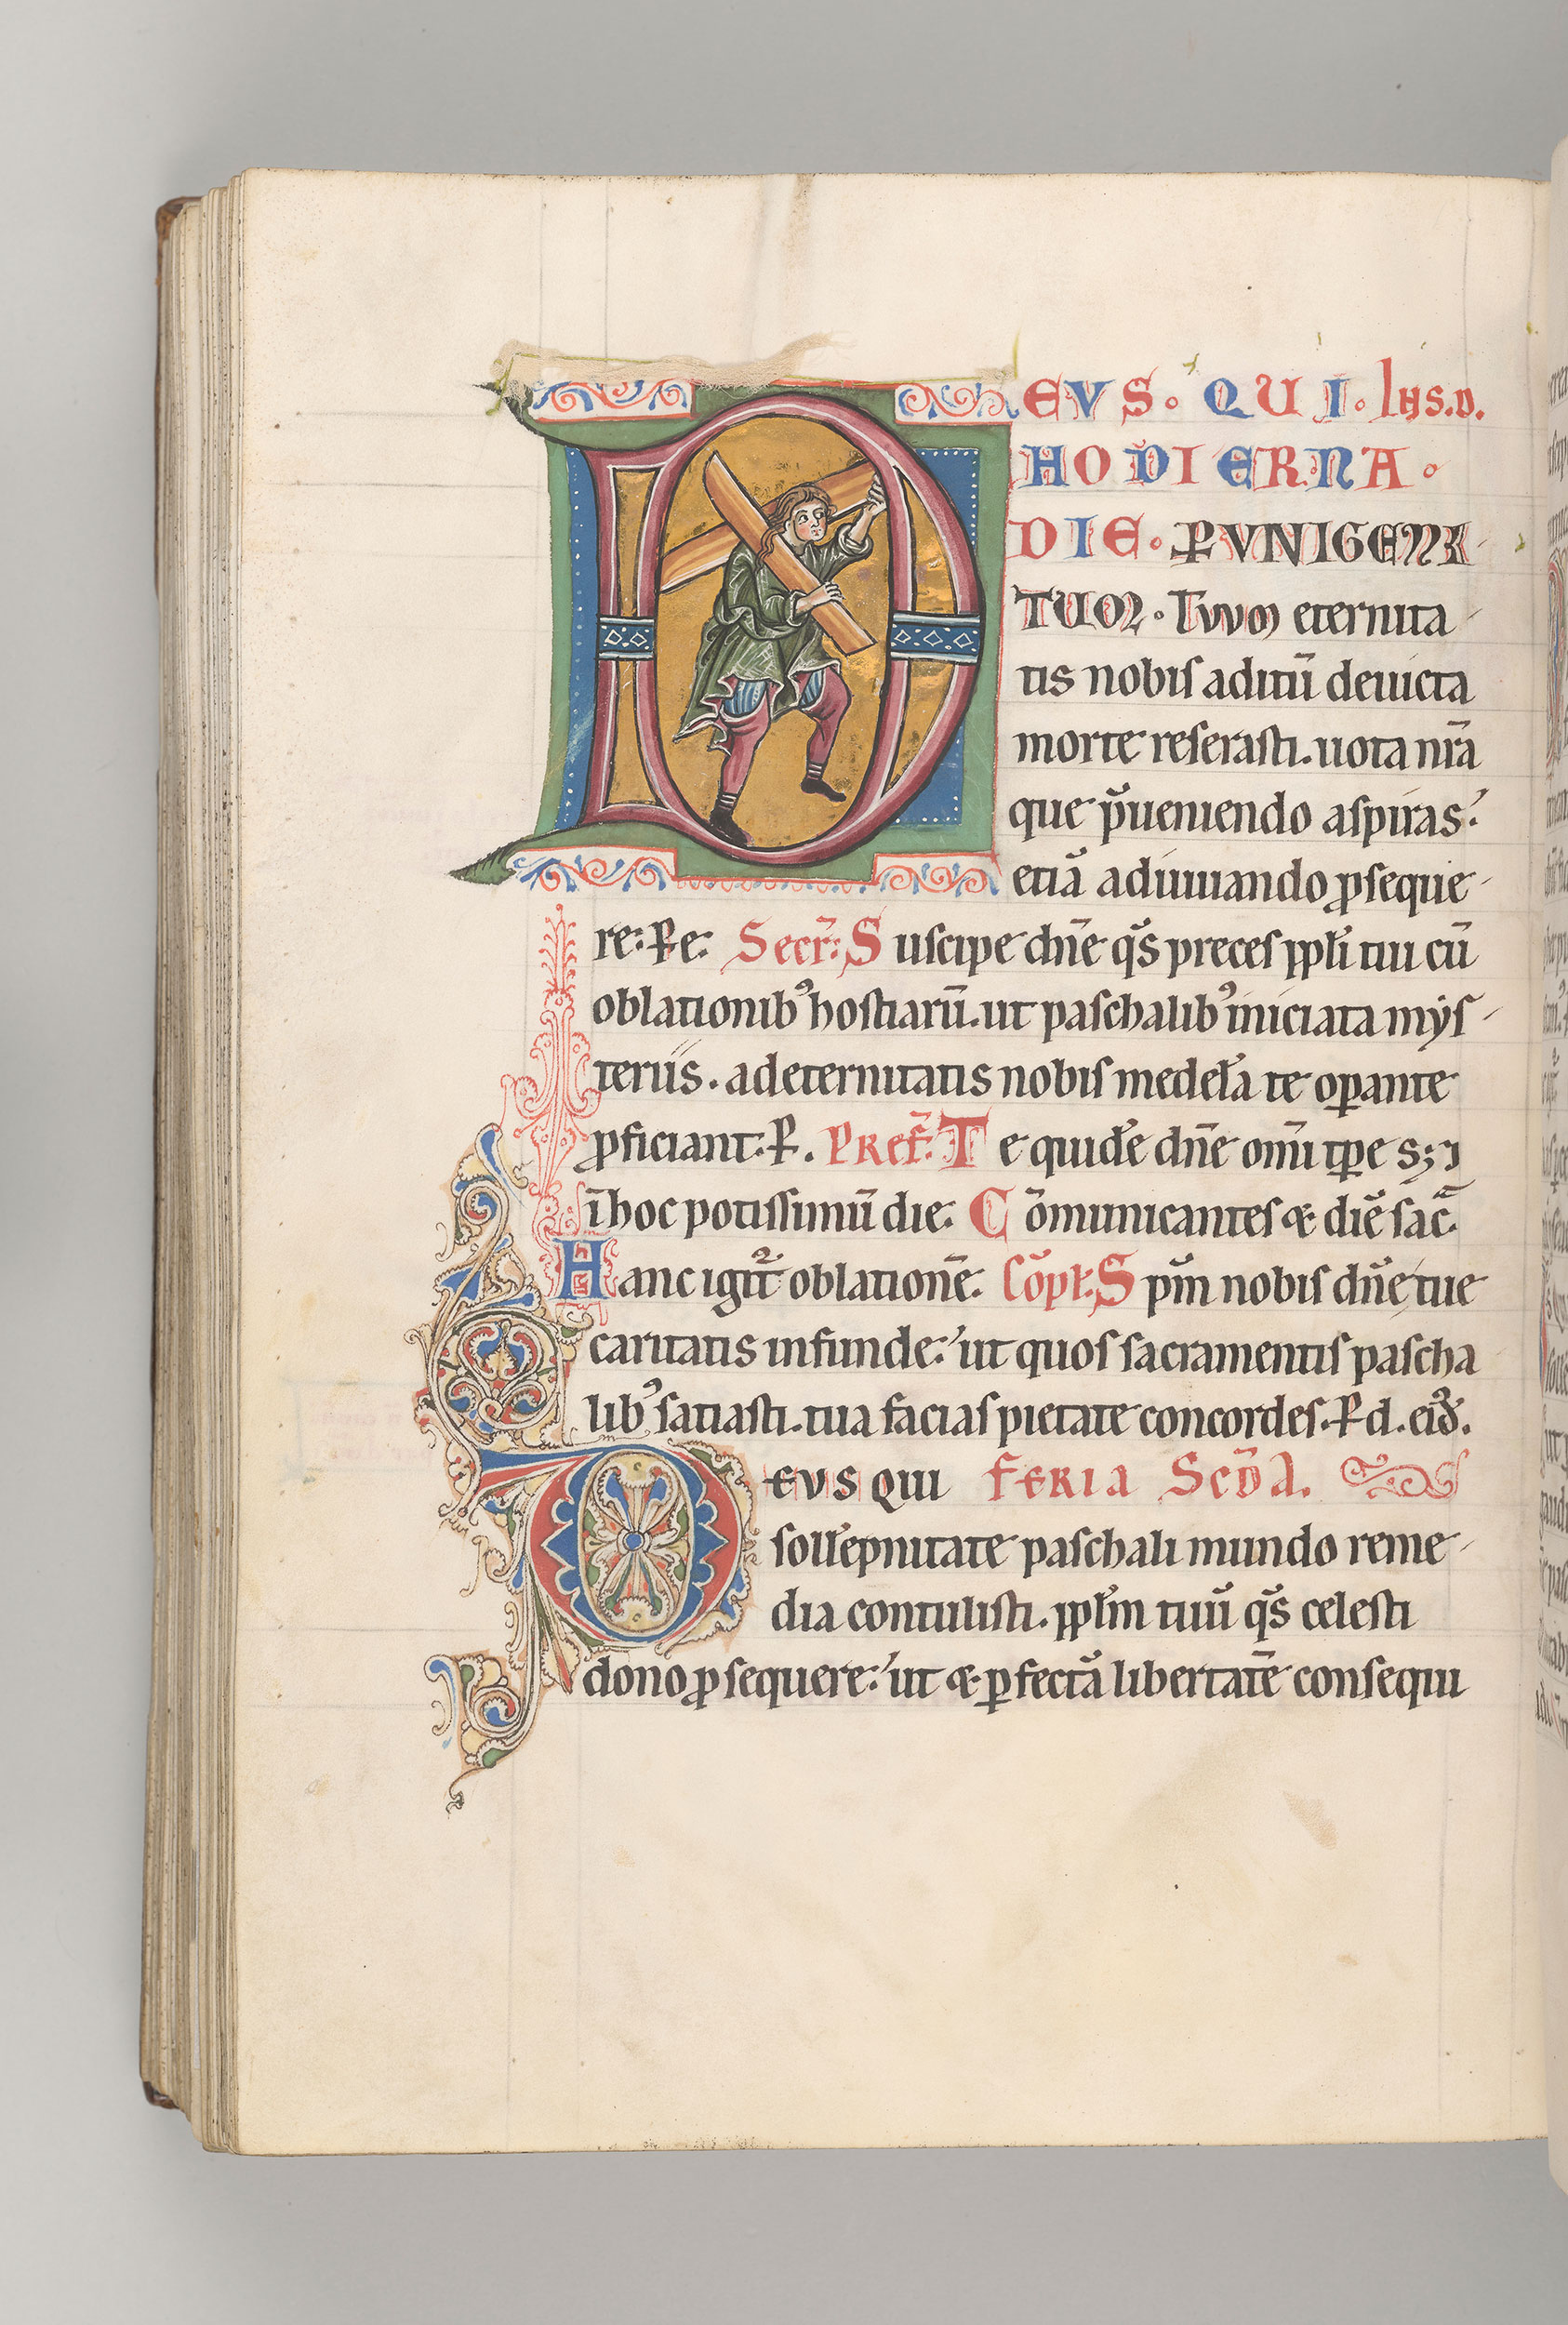 DEVS. QUI. IHS.D.
HODIERNA.
DIE. ꝑ VNIGENI
TUM. TVVM eternita
tis nobis aditū deuicta
morte reserasti. uota nr̄a
que p̄ueniendo aspiras.
etiā adiuuando ꝓseque
re: Pe. Secr̄: Suscipe dn̄e qs̄ preces ppl̄i tui cū
oblationibꝰ hostiarū. ut paschalibꝰ iniciata mys
teriis. ad eternitatis nobis medelā te oꝑante
ꝓficiant: P. Pref̄: Te quidē dn̄e om̄i tꝑe s; ⁊
ī hoc potissimū die. Cōmunicantes & diē sac̄.
Hanc igit̄ oblationē. Cōpl: Spm̄ nobis dn̄e tue
caritatis infunde: ut quos sacramentis pascha
libꝰ satiasti. tua facias pietate concordes. P d. eiꝰd.
DEVS QUI FERIA SCDA.
sollēpnitate paschali mundo reme
dia contulisti. ppl̄m tuū qs̄ celesti
dono ꝓsequere: ut & ꝑfectā libertatē consequi